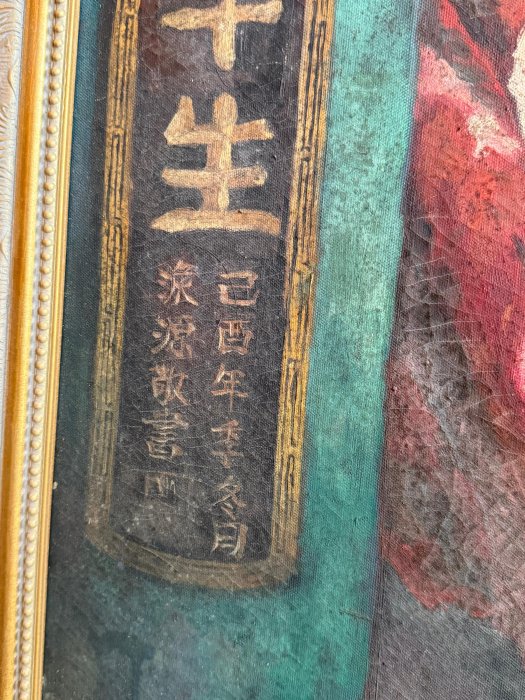 生
己酉年季冬月
源敬書